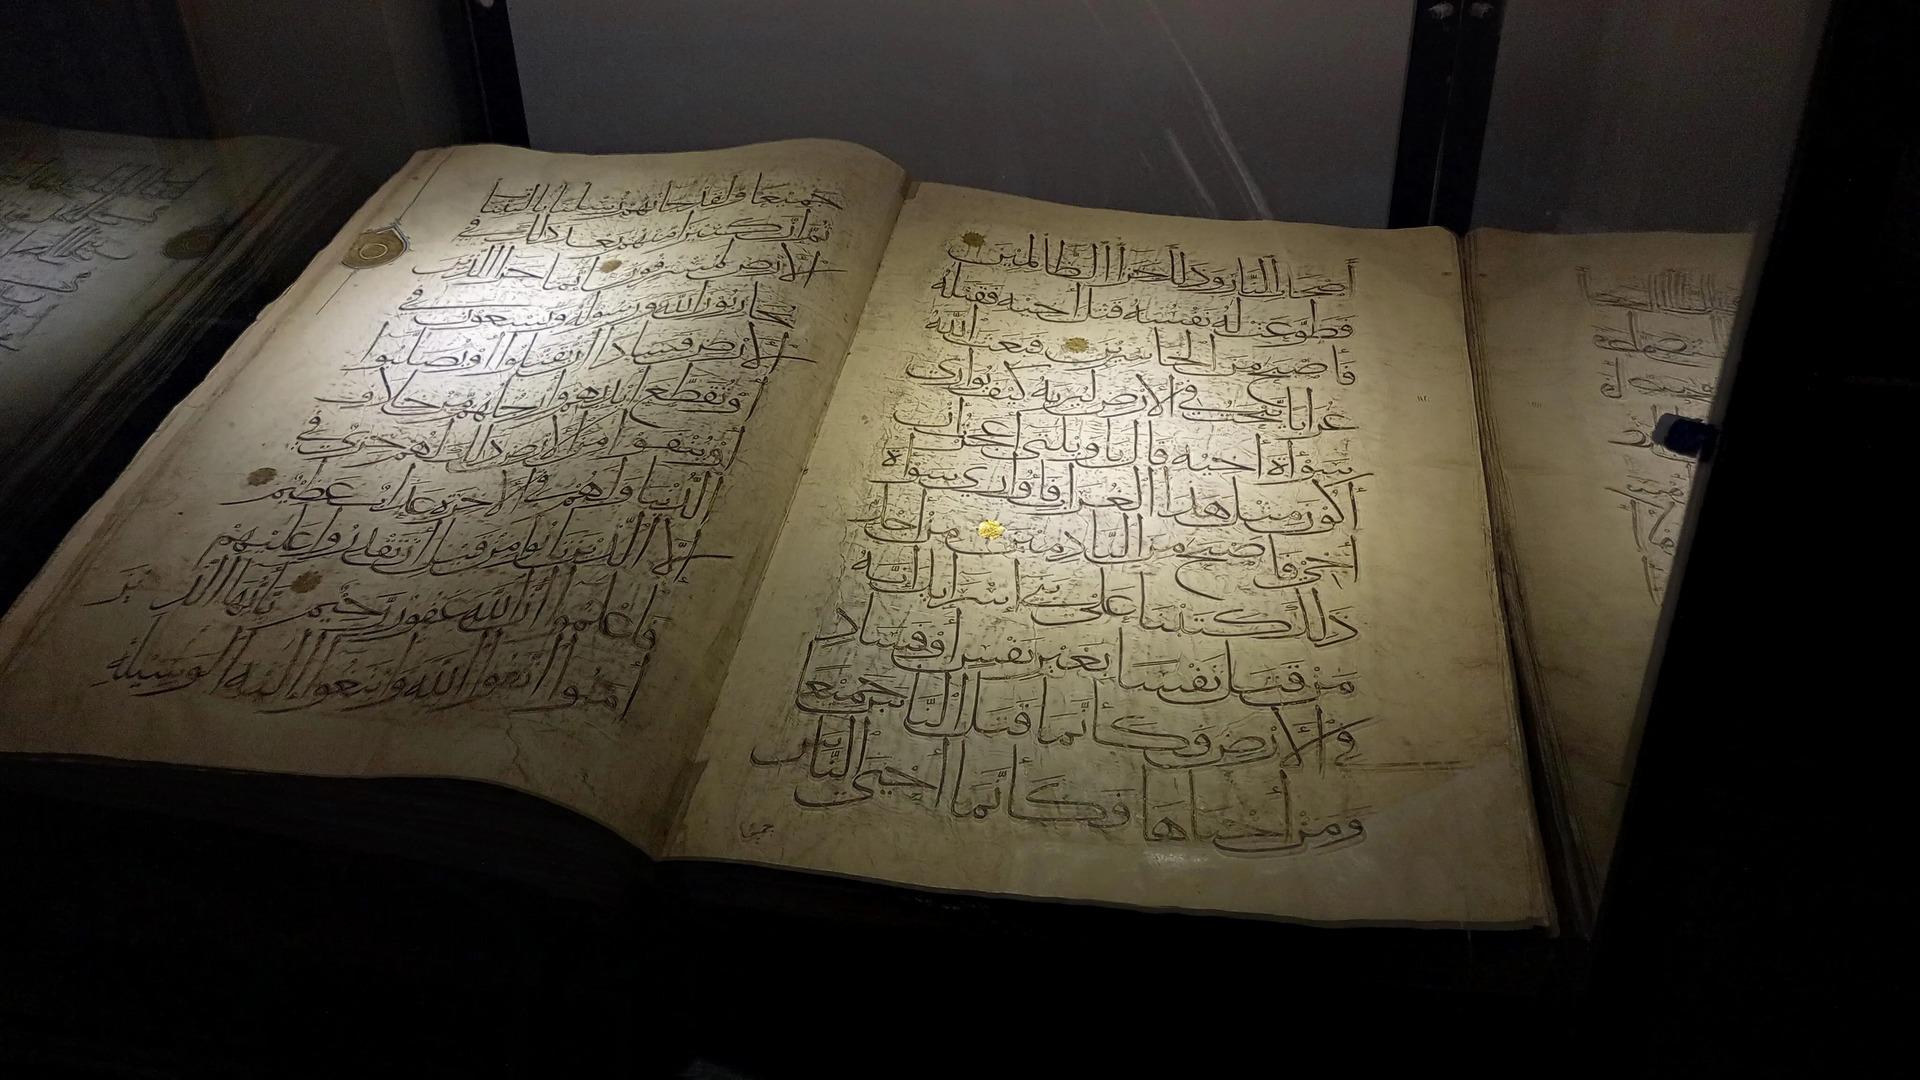 أصحاب النار وذلك جزاء الظالمين
فطوعت له نفسه قتل أخيه فقتله
فأصبح من الخاسرين فبعث الله
غرابا يبحث في الأرض ليريه كيف يواري
سوأة أخيه قال يا ويلتى أعجزت أن
أكون مثل هذا الغراب فأواري سوأة
أخي فأصبح من النادمين من أجل
ذلك كتبنا على بني إسرايل أنه
من قتل نفسا بغير نفس أو فساد
في الأرض فكأنما قتل الناس جميعا
ومن أحياها فكأنما أحيى الناس
جميعا
جميعا ولقد جاتهم رسلنا بالبينات
ثم إن كثيرا منهم بعد ذلك في
الأرض لمسرفون إنما جزاء الذين
يحاربون الله ورسوله ويسعون في
الأرض فسادا أن يقتلوا أو يصلبوا
أو تقطع أيديهم وأرجلهم من خلاف
أو ينفوا من الأرض ذلك لهم خزي في
الدنيا ولهم في الآخرة عذاب عظيم
إلا الذين تابوا من قبل أن تقدروا عليهم
فاعلموا أن الله غفور رحيم يأيها الذين
آمنوا اتقوا الله وابتغوا إليه الوسيلة